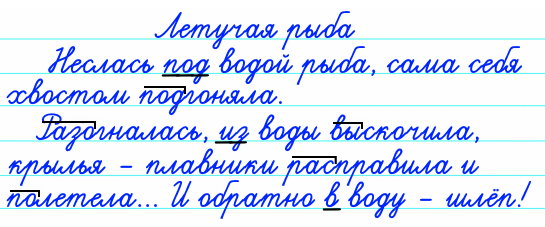 Летучая рыба
Неслась под водой рыба, сама себя
хвостом подгоняла.
Разогналась, из воды выскочила,
крылья – плавники расправила и
полетела... И обратно в воду – шлёп!